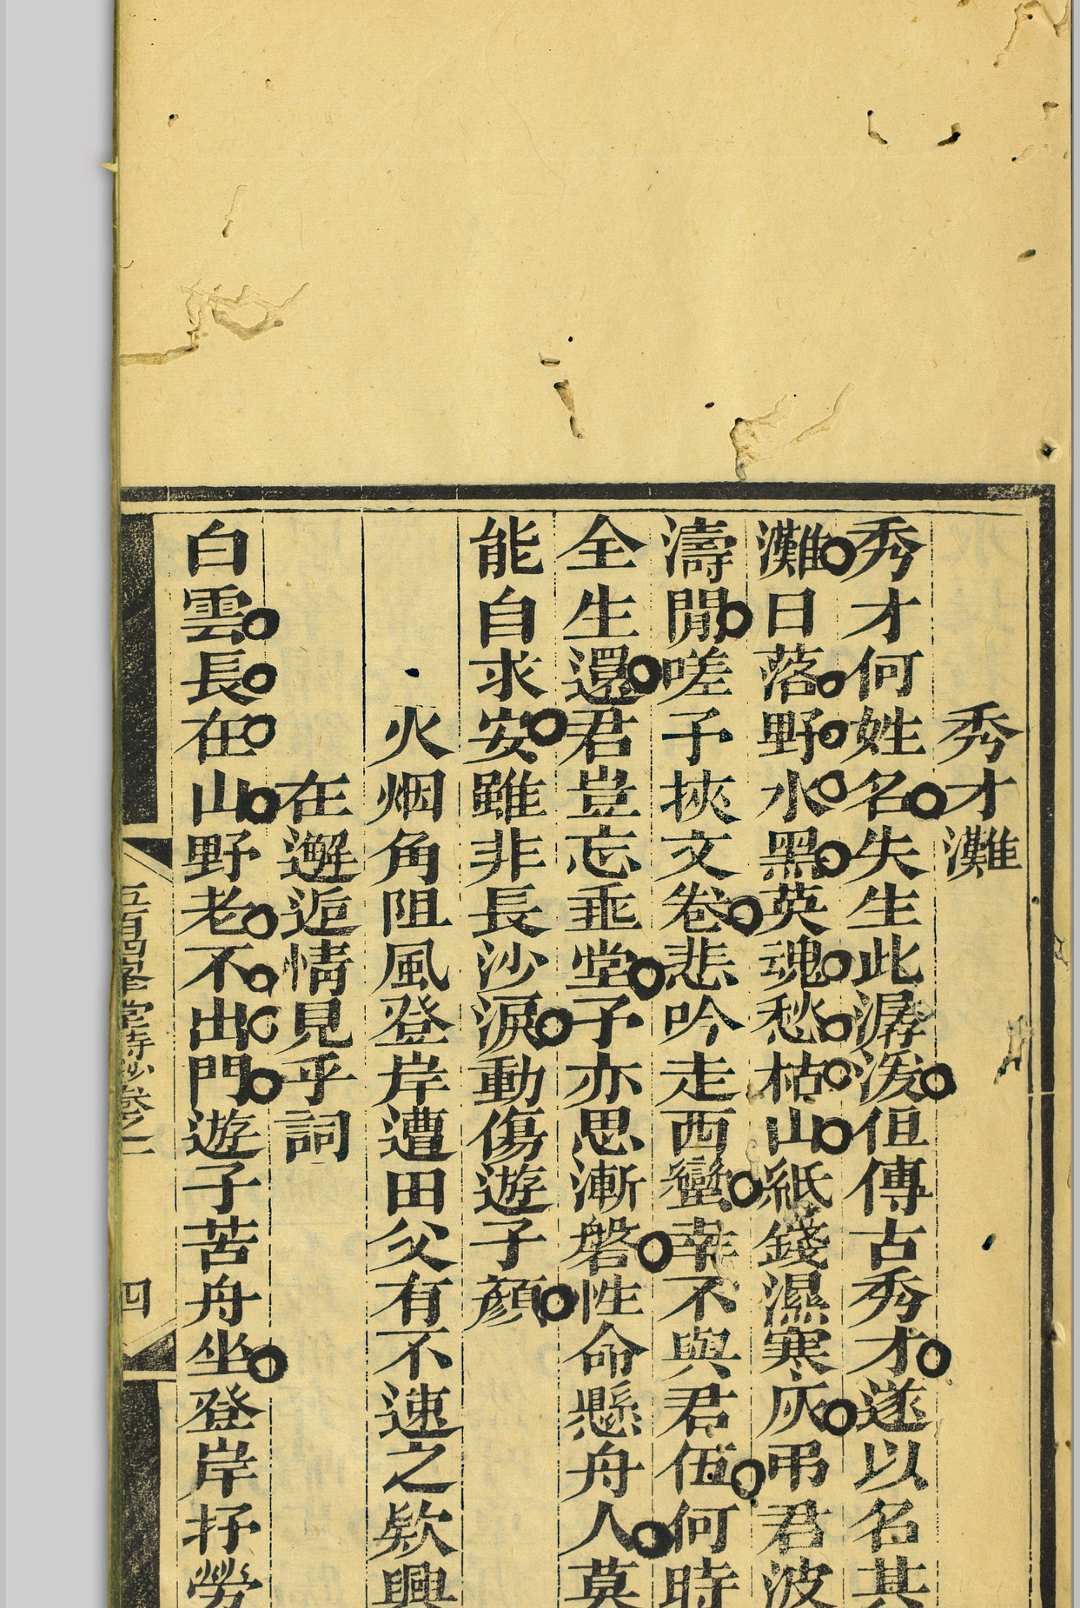 秀才灘
秀才何姓名失生此潺湲但傳古秀才遂以名其
灘日落野水黑英魂愁枯山紙錢濕寒灰弔君波
濤閒嗟子挾文卷悲吟走西蠻幸不與君伍何時
全生還君豈忘垂堂予亦思漸磐性命懸舟人莫
能自求安雖非長沙淚動傷遊子顏
火烟角阻風登岸遭田父有不速之欵興
在邂逅情見乎詞
白雲長在山野老不出門遊子苦舟坐登岸抒勞
五百四峯堂詩鈔卷之一
四